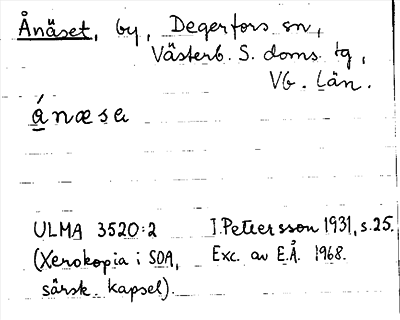 Ånäset, by, Degerfors sn,
Västerb. S. doms. tg,
Vb. län.
ánæsa
ULMA 3520:2 J. Pettersson 1931, s. 25.
(Xerokopia i SOA, Exc. av E.Å. 1968.
särsk. kapsel).